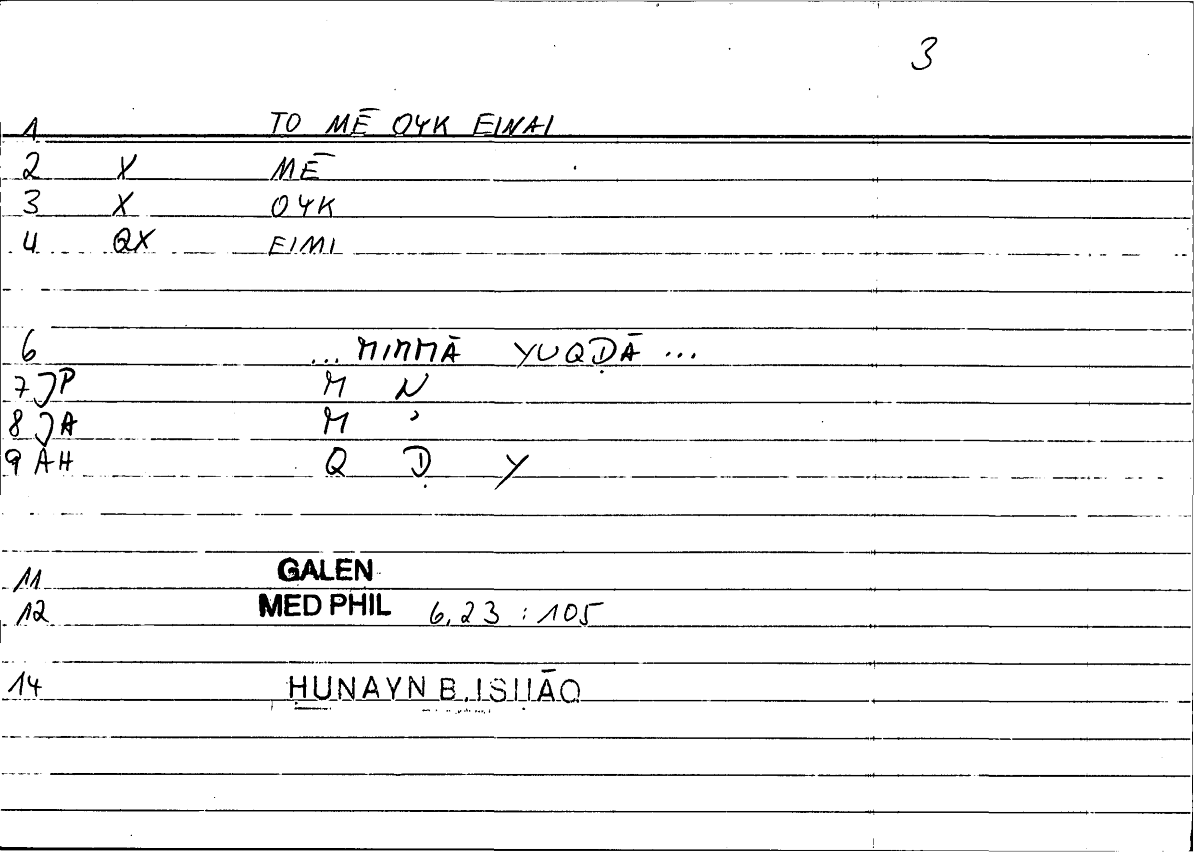 3
1 TO MĒ OYK EINAI
2 X MĒ
3 X OYK
4 QX EIMI
6 ... MIMMĀ YUQḌĀ ...
7 JP M N
8 JA M ʾ
9 AH Q Ḍ Y
11 GALEN
12 MED PHIL 6,23 : 105
14 ḤUNAYN B. ISḤĀQ